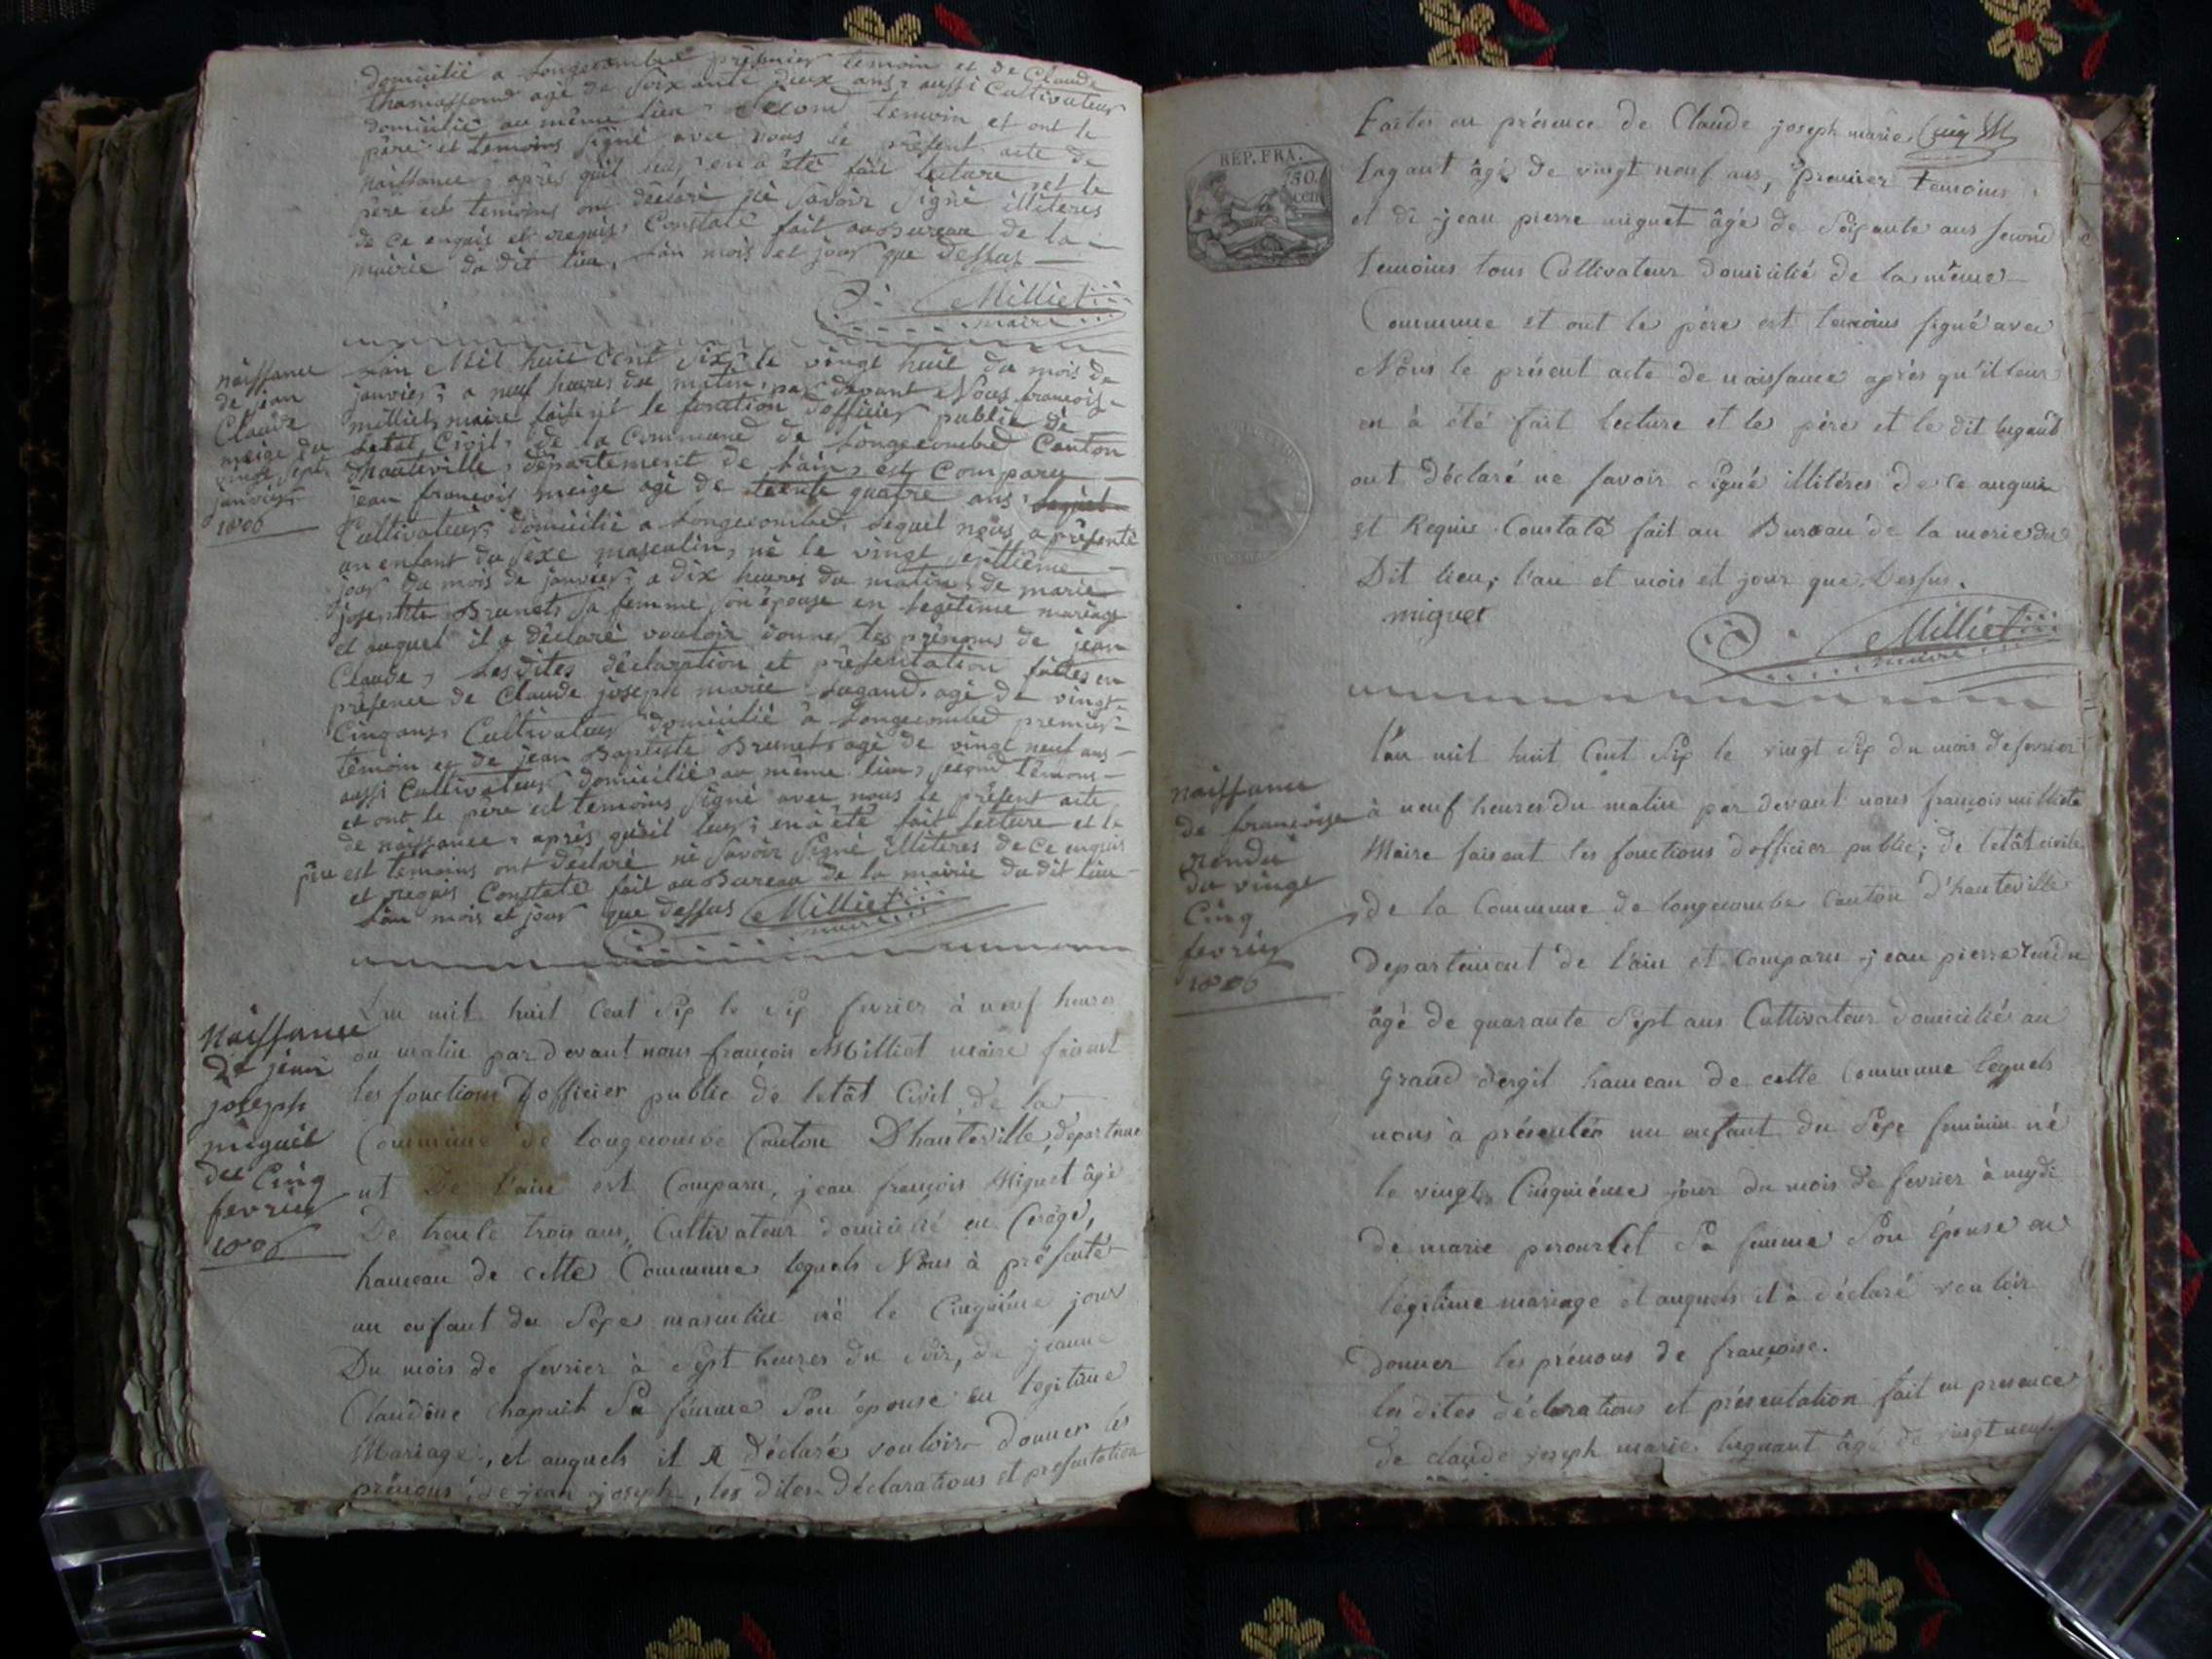 domicilié a Longecombe premier temoin et de Claude
thomasson agé de soixante deux ans, aussi Cultivateur
domicilié au même lieu, second temoin et ont le
père et temoins signé avec nous le présent acte de
naissance, après qu'il leur en a été fait lecture et le
père est temoins ont déclaré né savoir signé illiteres
de ce enquis et requis, Constaté fait au Bureau de la
mairie du dit lieu, l'an mois et jour que dessus
Milliet
maire
naissance
de jean
Claude
meige du
vingt sept
janvier
1806
L'an Mil huit Cent six, le vingt huit du mois de
janvier, a neuf heures du matin, par devant Nous françois
milliet, maire faisent le fonction d'officier public de
letat Civil, de la Commune de Longecombe Canton
d'hauteville, département de L'ain, est Comparu
jean francois meige agé de trente quatre ans, lequel
Cultivateur, domicilié a Longecombe, Lequel nous a présenté
un enfant du sexe masculin, né le vingt septième
jour du mois de janvier, a dix heures du matin, de marie
josephte Brunet, sa femme son épouse en legitime mariage
et auquel il a déclaré vouloir donner les prénoms de jean
Claude, Lesdites déclaration et présentation faites en
présence de Claude joseph marie Lugand, agé de vingt
Cinq ans, Cultivateur domicilié a Longecombe premier
témoin et de jean Baptiste Brunet, agé de vingt neuf ans
aussi Cultivateur, domicilié au même lieu, second temoins
et ont le père est temoins signé avec nous le présent acte
de naissance, après qu'il leur, en a été fait lecture et le
père est temoins ont déclaré né savoir signé illiteres de ce enquis
et requis Constaté fait au Bureau de la mairie du dit lieu
L'an mois et jour que dessus Milliet
maire
Naissance
de jean
joseph
miguet
du Cinq
fevrier
1806
L'an mil huit Cent Six le six fevrier à neuf heures
du matin par devant nous françois Milliet maire faisant
les fonctions D'officier public de letât Civil, de la
Commune de longecombe Canton D'hauteville, départeme
nt De l'ain est Comparu, jean françois Miguet âgé
De trente trois ans, Cultivateur domicilié en
hameau de cette Commune lequels Nous à présenté
un enfant du Sexe masculin né le Cinquième jour
Du mois de fevrier à Sept heures du soir, de jeanne
Claudine Chapuit Sa femme Son épouse en legitime
Mariage, et auquels il A déclaré vouloir donner les
prénoms de jean joseph, les dites Déclarations et présentation
REP. FRA.
50
CEN
Faites en présence de Claude joseph marie
lugant âgé de vingt neuf ans, premier temoins
et de jean pierre miguet âgé de Soixante ans second
temoins tous Cultivateur domicilié de la même
Commune et ont le père est temoins signé avec
Nous le présent acte de naissance après qu'il leur
en à été fait lecture et le père et le dit lugant
ont déclaré ne savoir signé illitéres de ce anquis
et Requis Constaté fait au Bureau de la merie du
Dit lieu, l'an et mois est jour que Dessus.
miguet
Milliet
maire
naissance
de françoise
rendu
du vingt
Cinq
fevrier
1806
l'an mil huit Cent Six le vingt Six du mois de fevrier
à neuf heures du matin par devant nous françois milliet
Maire faisent les fonctions d'officier public; de letât civile
de la Commune de longecombe Canton d'hauteville
departement de l'ain et Comparu jean pierre rendu
âgé de quarante Sept ans Cultivateur domicilié au
grand dergit hameau de cette Commune lequels
nous à présenter un enfant du Sexe feminin né
le vingt Cinquiéme jour du mois de fevrier à mydi
de marie Sa femme Son Épouse en
légitime mariage et auquels il à déclaré vouloir
donner les prénoms de françoise.
les dites déclarations et présentation fait en presence
de claude joseph marie lugnant âgé de vingt neuf